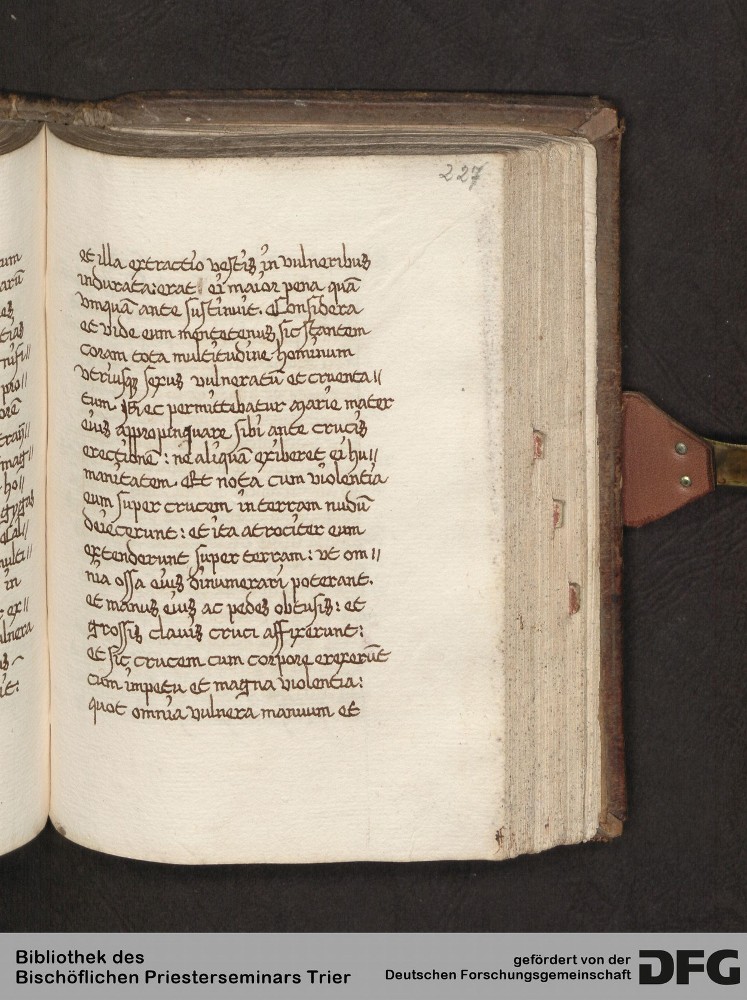 227
et illa extractio vestis in vulneribus
indurata: erat ei maior pena quā
vmquā ante sustinuit. Considera
et vide eum mentetenus sic stantem
coram tota multitudine hominum
vtriusqꝫ sexus vulneratū et cruenta//
tum. Nec permittebatur marie mater
eius appropinquare sibi ante crucis
erectionē: ne aliquā exiberet ei hu//
manitatem. Et nota cum violentia
eum super crucem in terram nudū
deiecerunt: et ita atrociter eum
extenderunt super terram: vt om//
nia ossa eius dinumerari poterant.
et manus eius ac pedes obtusis: et
grossis clauis cruci affixerunt:
et sic crucem cum corpore erexerūt
cum impetu et magna violentia:
quot omnia vulnera manuum et
Bibliothek des
Bischöflichen Priesterseminars Trier
gefördert von der
Deutschen Forschungsgemeinschaft
DFG